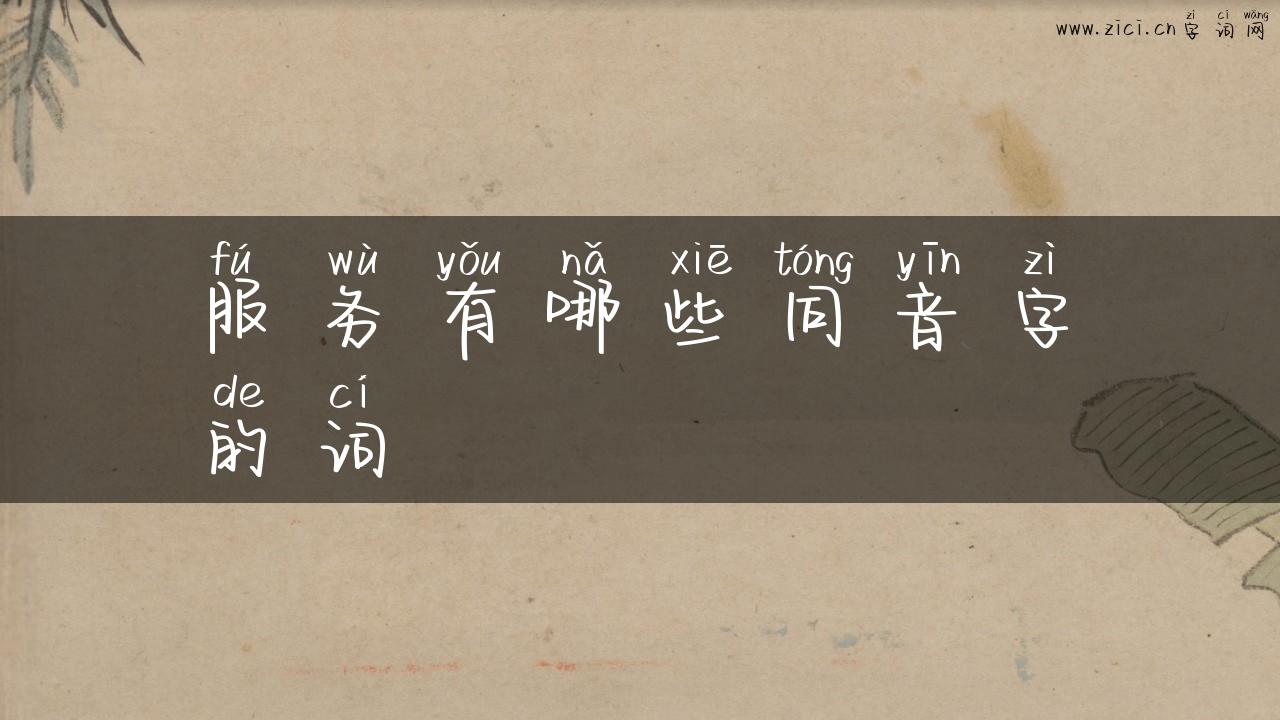 zì cí wǎng
www.zici.cn 字 词 网
fú wù yǒu nǎ xiē tóng yīn zì
服 务 有 哪 些 同 音 字
de cí
的 词